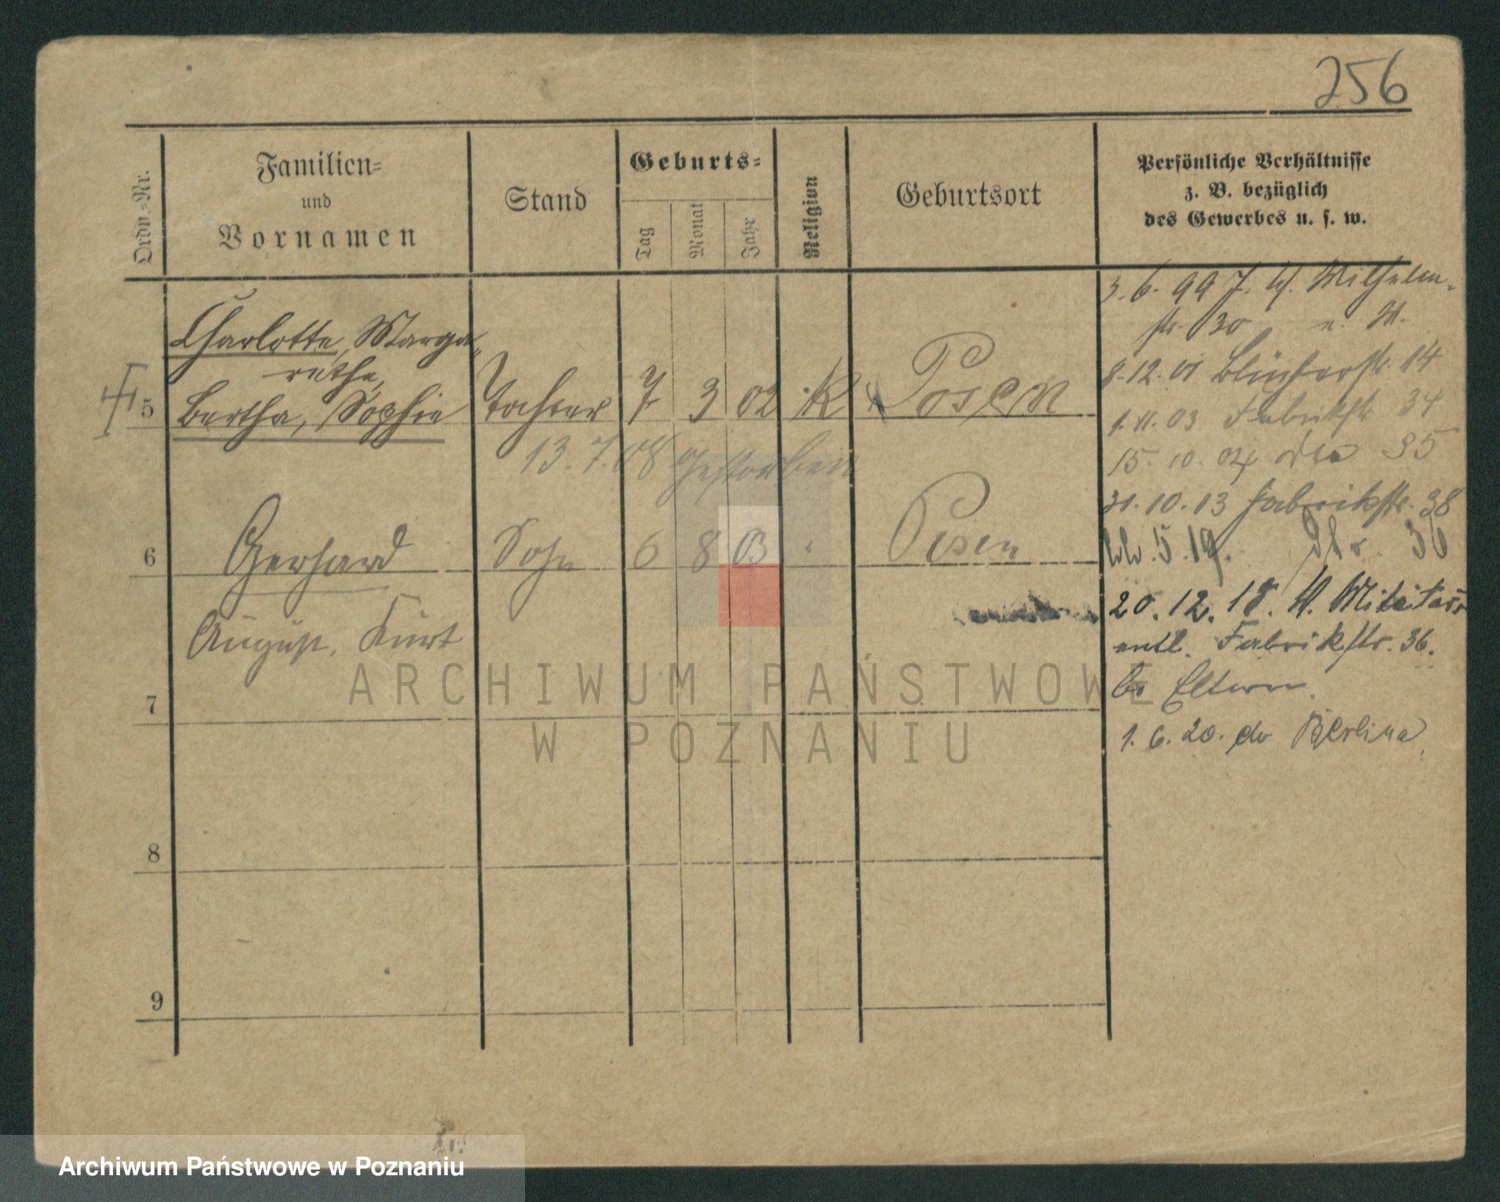 256
Ordn.-Nr.
Familien-
und
Vornamen
Stand
Geburts-
Tag
Monat
Jahr
Religion
Geburtsort
Persönliche Verhältnisse
z. B. bezüglich
des Gewerbes u. s. w.
5
Charlotte, Marga-
rethe,
Bertha, Sophie
Tochter
7
3
02
K
Posen
13.7.08 gestorben
6
Gerhard
Sohn
6
8
03
"
Posen
August, Kurt
7
8
9
3.6.99 Wilhelm-
str. 30
8.12.01 Blücherstr. 14
1.11.03 Fabrikstr. 34
15.10.04 35
31.10.13 Fabrikstr. 38
5.19. 36
20.12.18. v. Militär
entl. Fabrikstr. 36.
b. Eltern.
1.6.20. Berlin
ARCHIWUM PAŃSTWOWE
W POZNANIU
Archiwum Państwowe w Poznaniu